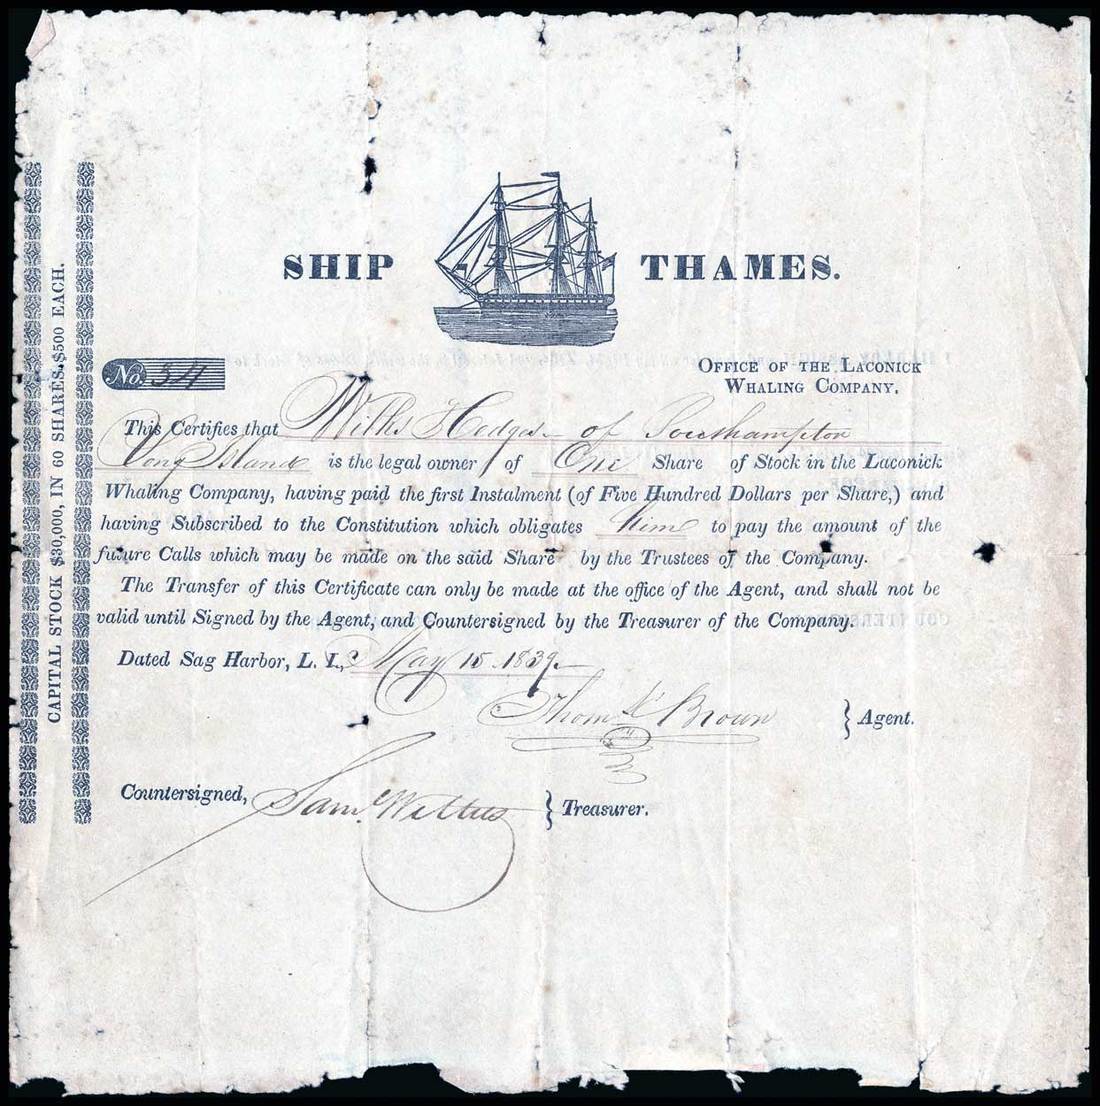 SHIP THAMES.
No. 34
OFFICE OF THE LACONICK
WHALING COMPANY.
This Certifies that Wilks Hedges of Southampton
Long Island is the legal owner of One Share of Stock in the Laconick
Whaling Company, having paid the first Instalment (of Five Hundred Dollars per Share,) and
having Subscribed to the Constitution which obligates him to pay the amount of the
future Calls which may be made on the said Share by the Trustees of the Company.
The Transfer of this Certificate can only be made at the office of the Agent, and shall not be
valid until Signed by the Agent, and Countersigned by the Treasurer of the Company.
Dated Sag Harbor, L. I., May 15 1839
Thom Brown } Agent.
Countersigned, Saml } Treasurer.
CAPITAL STOCK $30,000, IN 60 SHARES, $500 EACH.